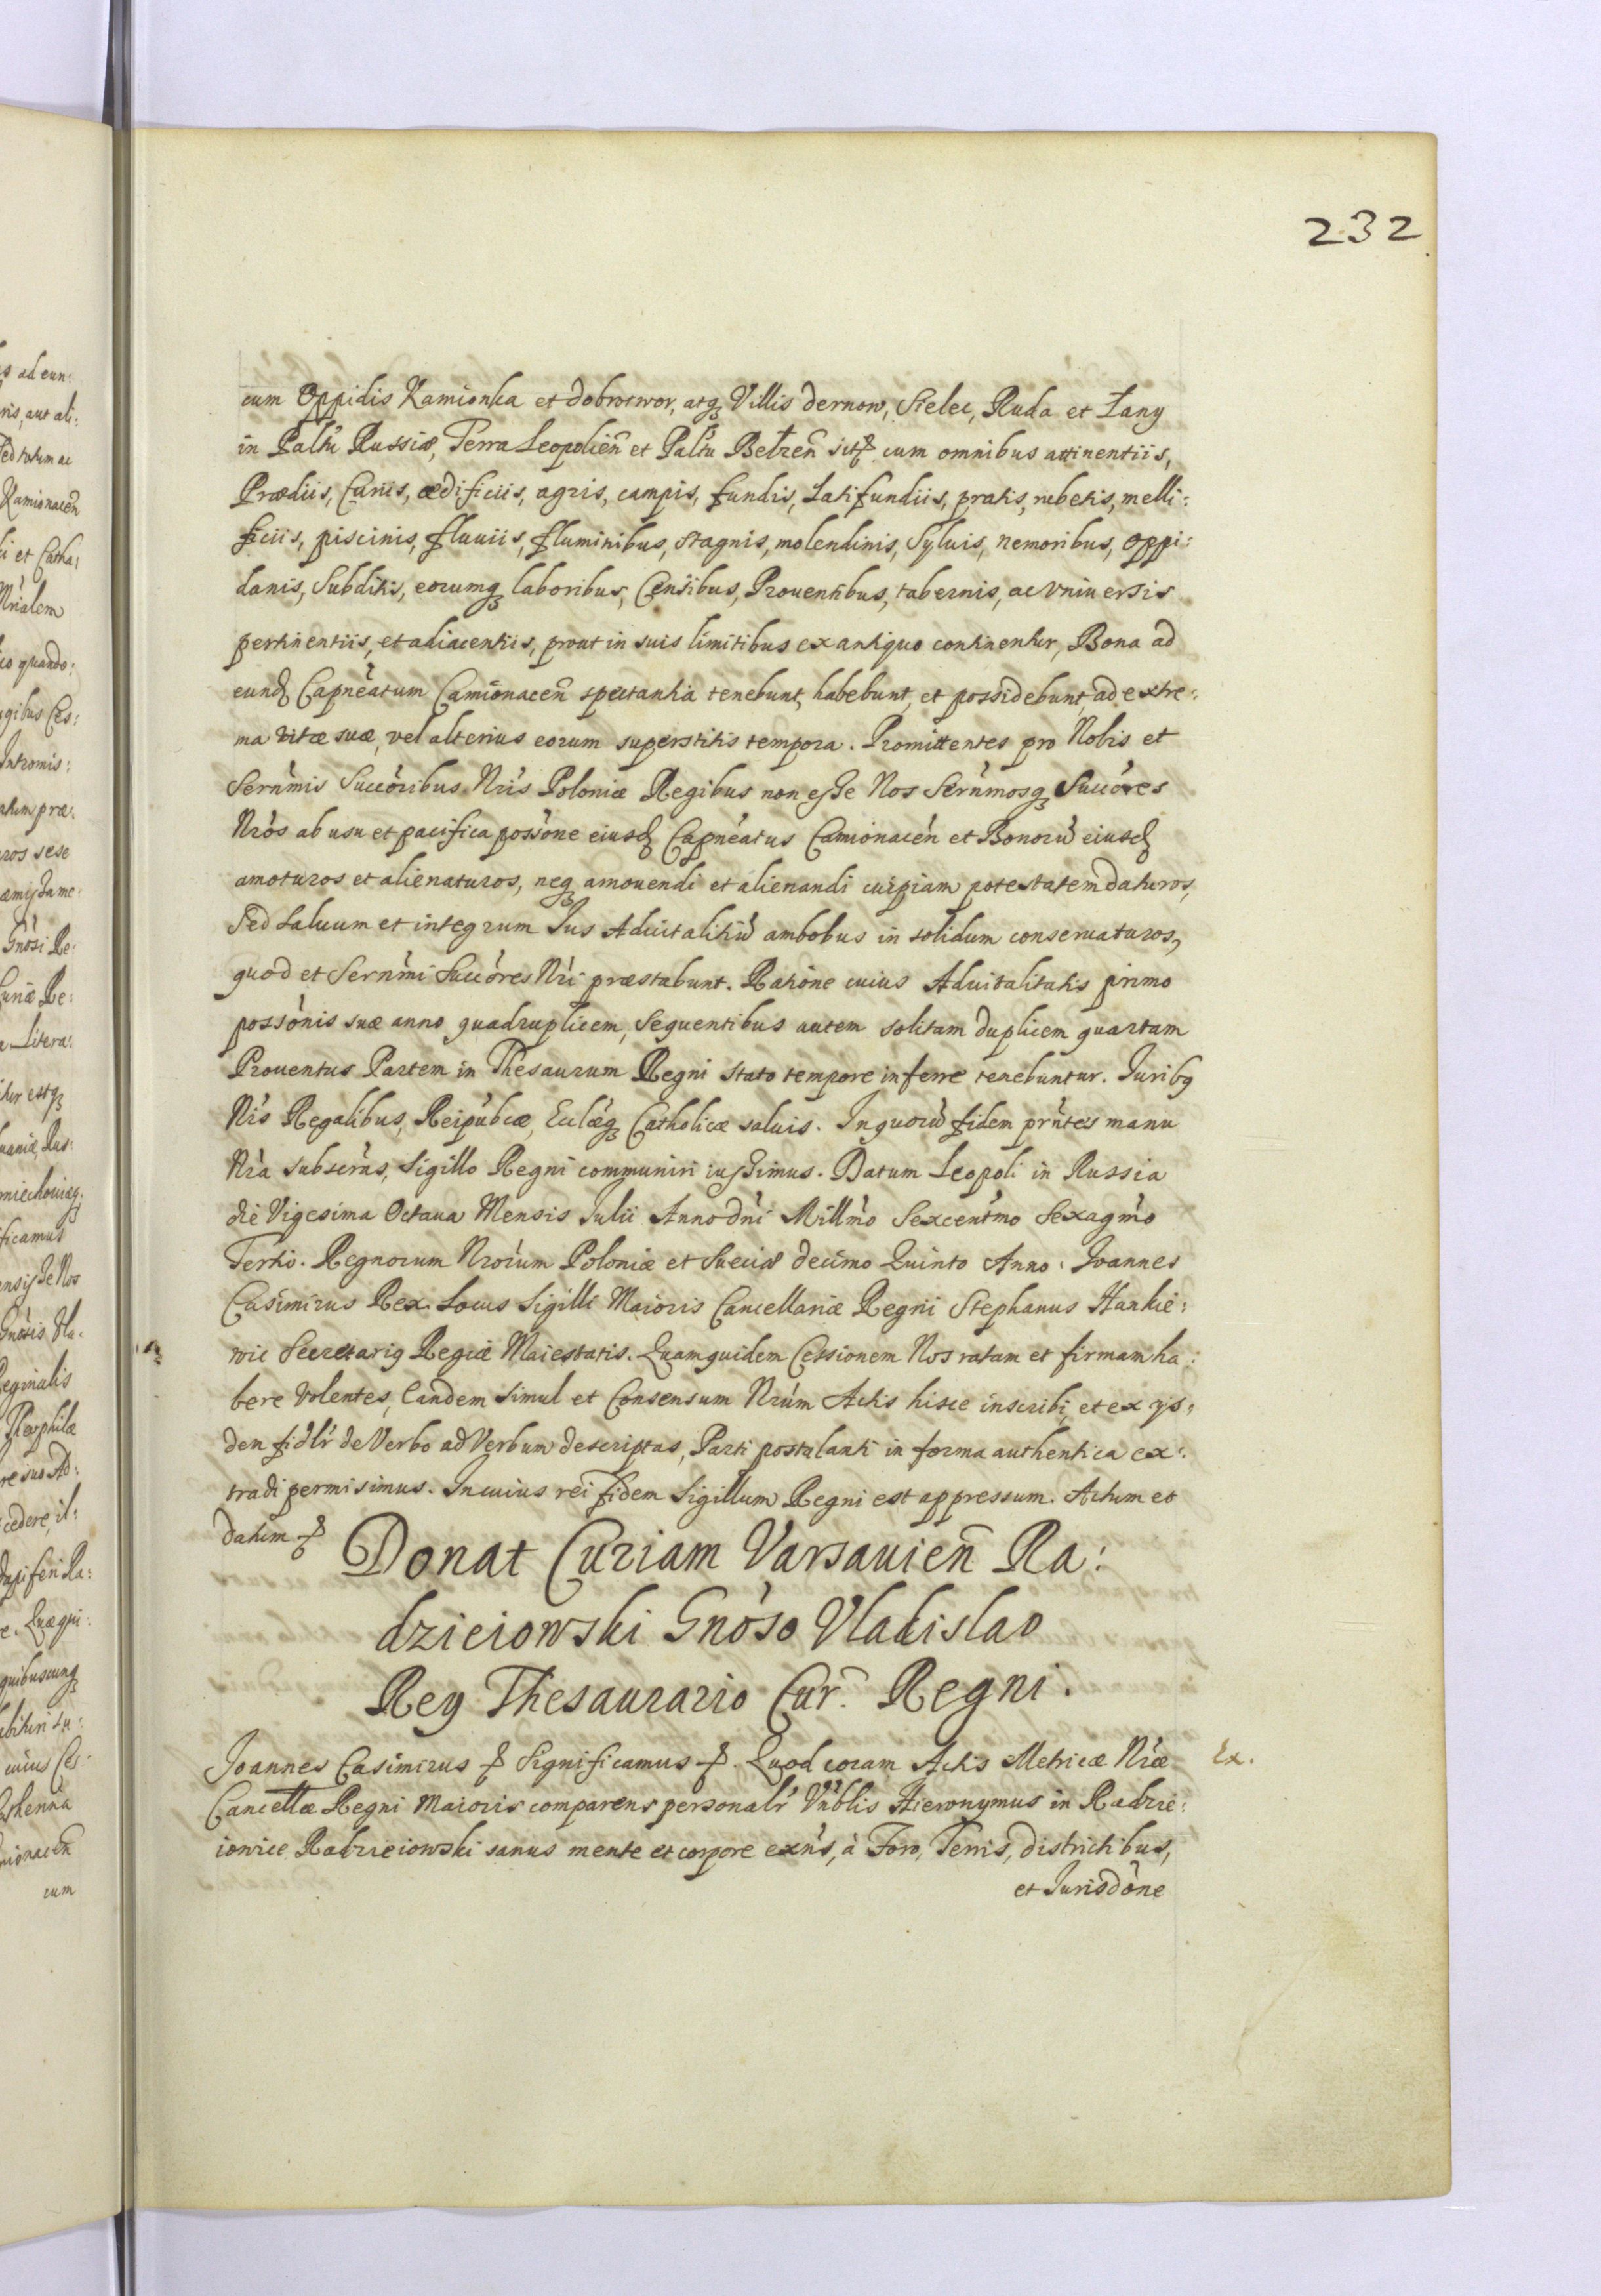 232
cum Oppidis Kamionka et dobrotwor, atq₃ Villis dernow, Sielec, Ruda et Łany
in Pałtu Russiæ, Terra Leopolien̄ et Pałtu Bełzen̄ sit₰ cum omnibus attinentiis,
Prædiis, Curiis, ædificiis, agris, campis, fundis, Latifundiis, pratis, rubetis, melli:
ficiis, piscinis, fluuiis, fluminibus, stagnis, molendinis, Syluis, nemoribus, oppi:
danis, Subditis, eorumq₃ laboribus, Censibus, Prouentibus, tabernis, ac vniuersis
pertinentiis, et adiacentiis, prout in suis limitibus ex antiquo continentur, Bona ad
eund Capnéatum Camionacen̄ spectantia tenebunt, habebunt, et possidebunt, ad extre:
ma vitæ suæ, vel alterius eorum superstitis tempora. Promittentes pro Nobis et
Sernm̀is Succòribus Nrìs Poloniæ Regibus non esse Nos Sernm̀osq₃ Succòres
Nròs ab usu et pacifica possòne eiusd Capnéatus Camionacèn et Bonorù eiusd
amoturos et alienaturos, neq₃ amouendi et alienandi cuipiam potestatem daturos,
Sed Saluum et integrum Ius Aduitalitiù ambobus in solidum conseruaturos,
quod et Sernm̀i Succòres Nrì præstabunt. Ratione cuius Aduitalitatis primo
possònis suæ anno quadruplicem, Sequentibus autem solitam duplicem quartam
Prouentus Partem in Thesaurum Regni stato tempore inferre tenebuntur. Iurib9
Nrìs Regalibus, Reipùbcæ, Ecclæq₃ Catholicæ saluis. In quorù fidem prǹtes manu
Nrà subscràs, Sigillo Regni communiri iussimus. Datum Leopoli in Russia
die Vigesima Octaua Mensis Iulii Anno dnì Millm̀o Sexcentm̀o Sexagm̀o
Tertio. Regnorum Nroȑum Poloniæ et Sueciæ decimo Quinto Anno. Ioannes
Casimirus Rex. Locus Sigilli Maioris Cancellariæ Regni Stephanus Hankie:
wic Secretari9 Regiæ Maiestatis. Quam quidem Cessionem Nos ratam et firmam ha:
bere volentes, Eandem simul et Consensum Nrùm Actis hisce inscribi, et ex ys:
dem fidlr̀ de Verbo ad Verbum descriptas, Parti postulanti in forma authentica ex:
tradi permisimus. In cuius rei fidem Sigillum Regni est appressum. Actum et
datum ₰
Donat Curiam Varsauien̄ Ra:
dzieiowski Gnòso Vladislao
Rey Thesaurario Cur̄. Regni.
Ioannes Casimirus ₰ Significamus ₰. Quod coram Actis Metricæ Nræ̀
Ex.
Cancellæ Regni Maioris comparens personalr̀ Vrb̀lis Hieronymus in Radzie:
iowice Radzieiowski sanus mente et corpore exǹs, à Foro, Terris, districtibus,
et Iurisdòne